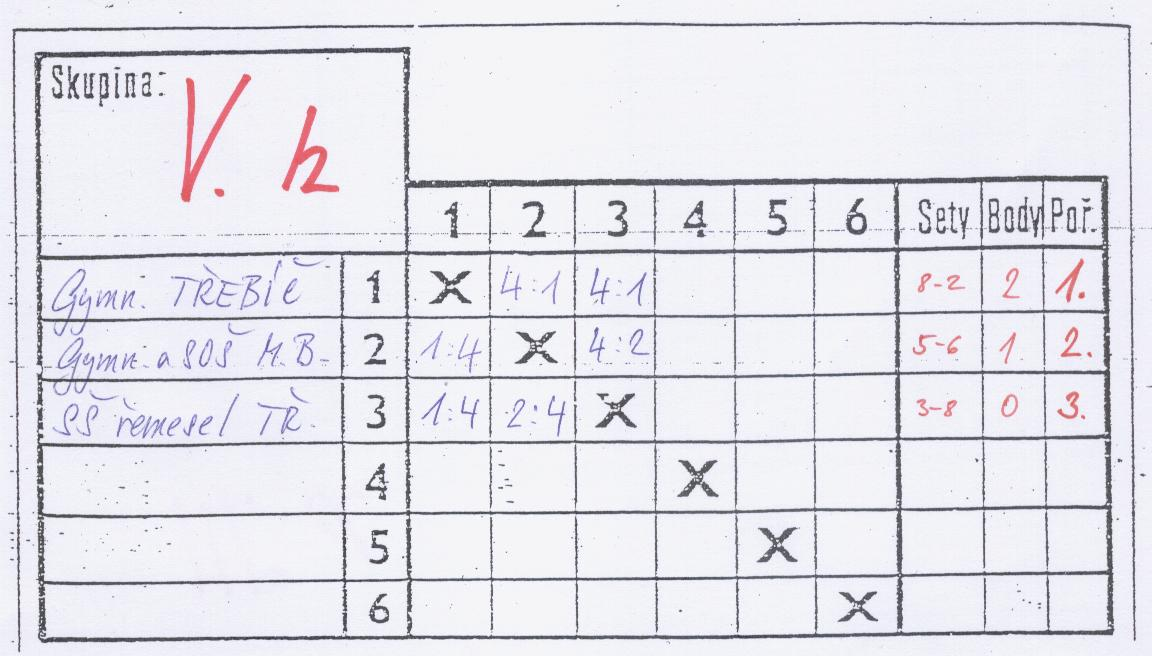 Skupina:
V. h
1 2 3 4 5 6 Sety Body Poř.
Gymn. TŘEBÍČ 1 X 4:1 4:1 8-2 2 1.
Gymn. a SOŠ M.B. 2 1:4 X 4:2 5-6 1 2.
SŠ řemesel TŘ. 3 1:4 2:4 X 3-8 0 3.
4 X
5 X
6 X